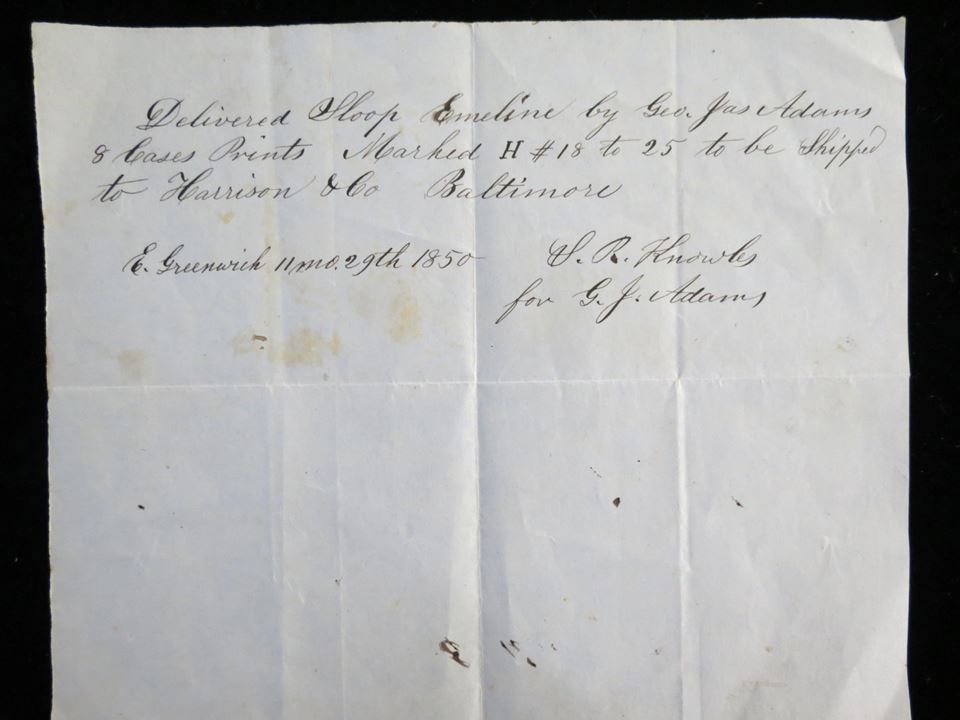 Delivered Sloop Emeline by Geo. Jas Adams
8 Cases Prints Marked H #18 to 25 to be Shipped
to Harrison & Co Baltimore
E. Greenwich 11mo. 29th 1850
S. R. Knowles
for G. J. Adams